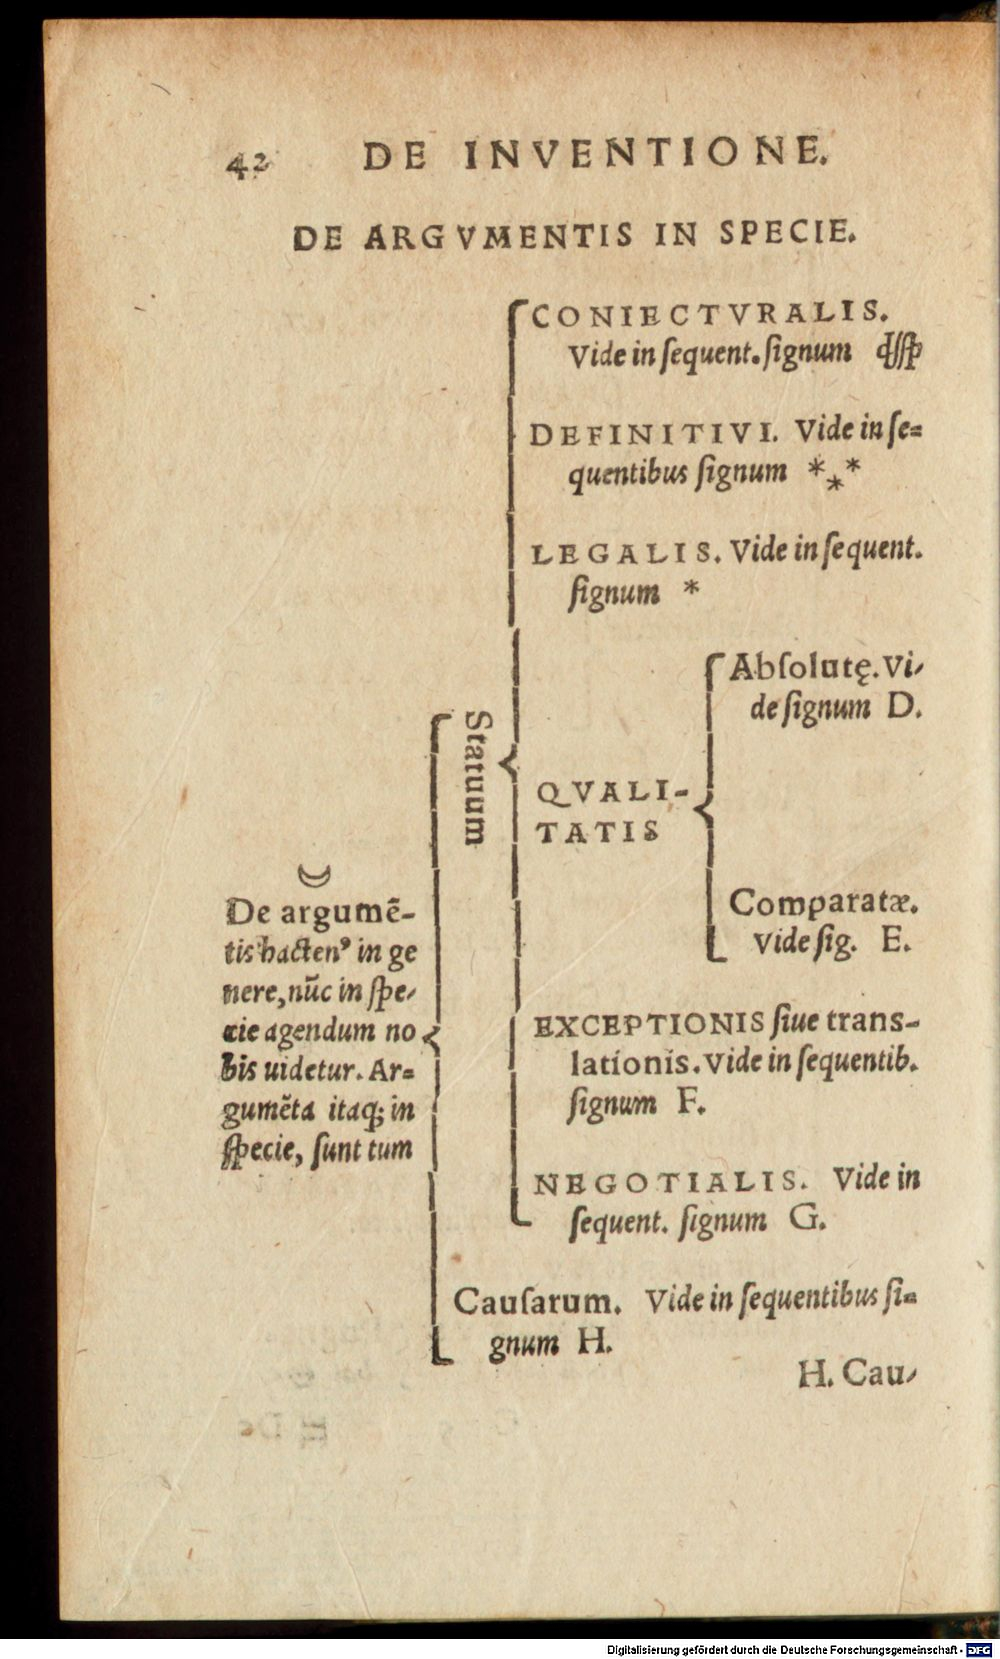 42 DE INVENTIONE.
DE ARGVMENTIS IN SPECIE.
De argumẽ-
tis hactenꝰ in ge
nere, nũc in ſpe-
cie agendum no
bis uidetur. Ar=
gumẽta itaq; in
ſpecie, ſunt tum
Statuum
CONIECTVRALIS.
Vide in ſequent. ſignum
DEFINITIVI. Vide in ſe=
quentibus ſignum ***
LEGALIS. Vide in ſequent.
ſignum *
QVALI-
TATIS
Abſolutę. Vi-
de ſignum D.
Comparatæ.
Vide ſig. E.
EXCEPTIONIS ſiue trans-
lationis. Vide in ſequentib.
ſignum F.
NEGOTIALIS. Vide in
ſequent. ſignum G.
Cauſarum. Vide in ſequentibus ſi=
gnum H.
H. Cau-
Digitalisierung gefördert durch die Deutsche Forschungsgemeinschaft - DFG